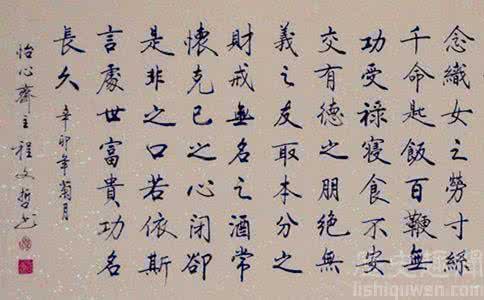 念織女之勞寸絲
千命匙飯百鞭無
功受祿寢食不安
交有德之朋絕無
義之友取本分之
財戒無名之酒常
懷克己之心閉卻
是非之口若依斯
言處世富貴功名
長久 辛卯年菊月
怡心齋主程文哲書
历史趣闻
lishiquwen.com